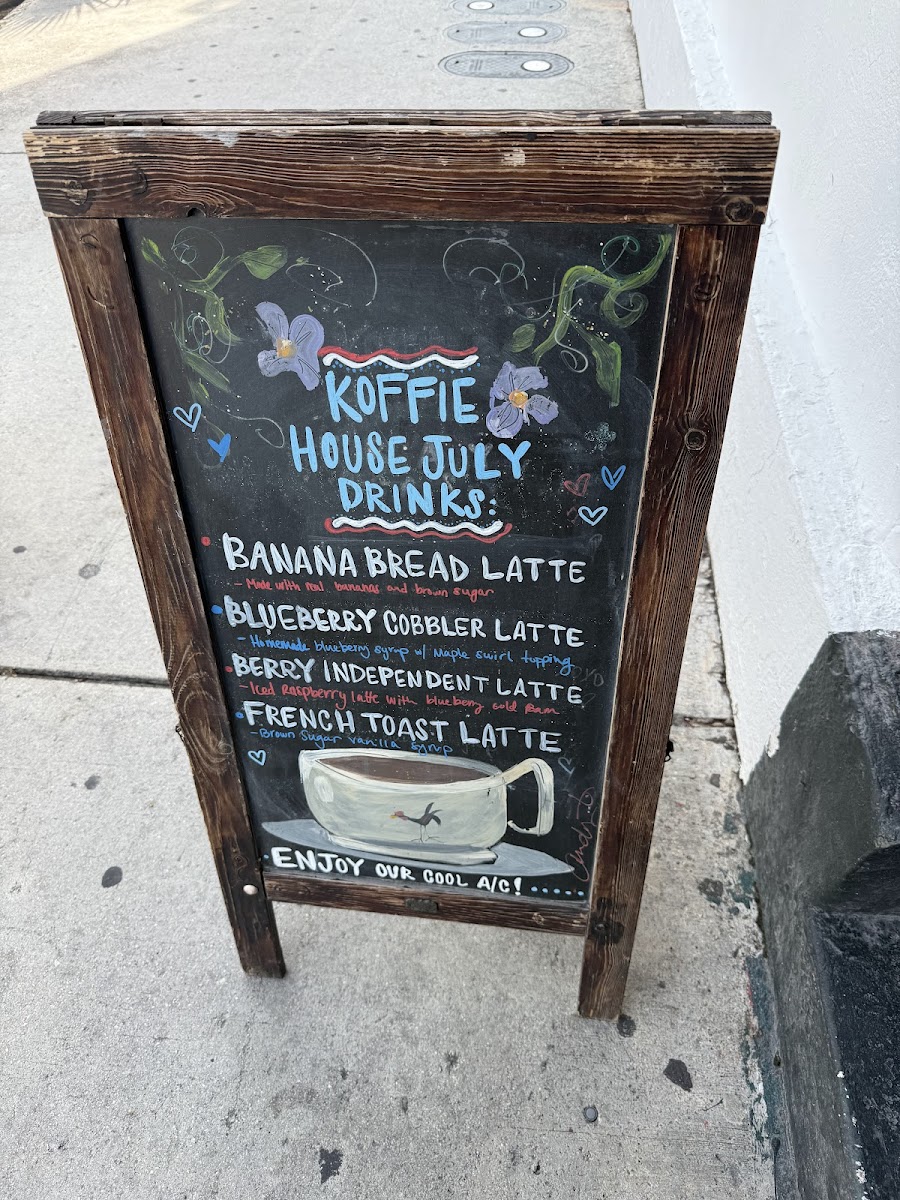 KOFFIE
HOUSE JULY
DRINKS:
BANANA BREAD LATTE
- Made with real bananas and brown sugar
BLUEBERRY COBBLER LATTE
- Homemade blueberry syrup w/ Maple swirl topping
BERRY INDEPENDENT LATTE
- Iced Raspberry latte with blueberry cold foam
FRENCH TOAST LATTE
- Brown Sugar vanilla syrup
ENJOY OUR COOL A/C!